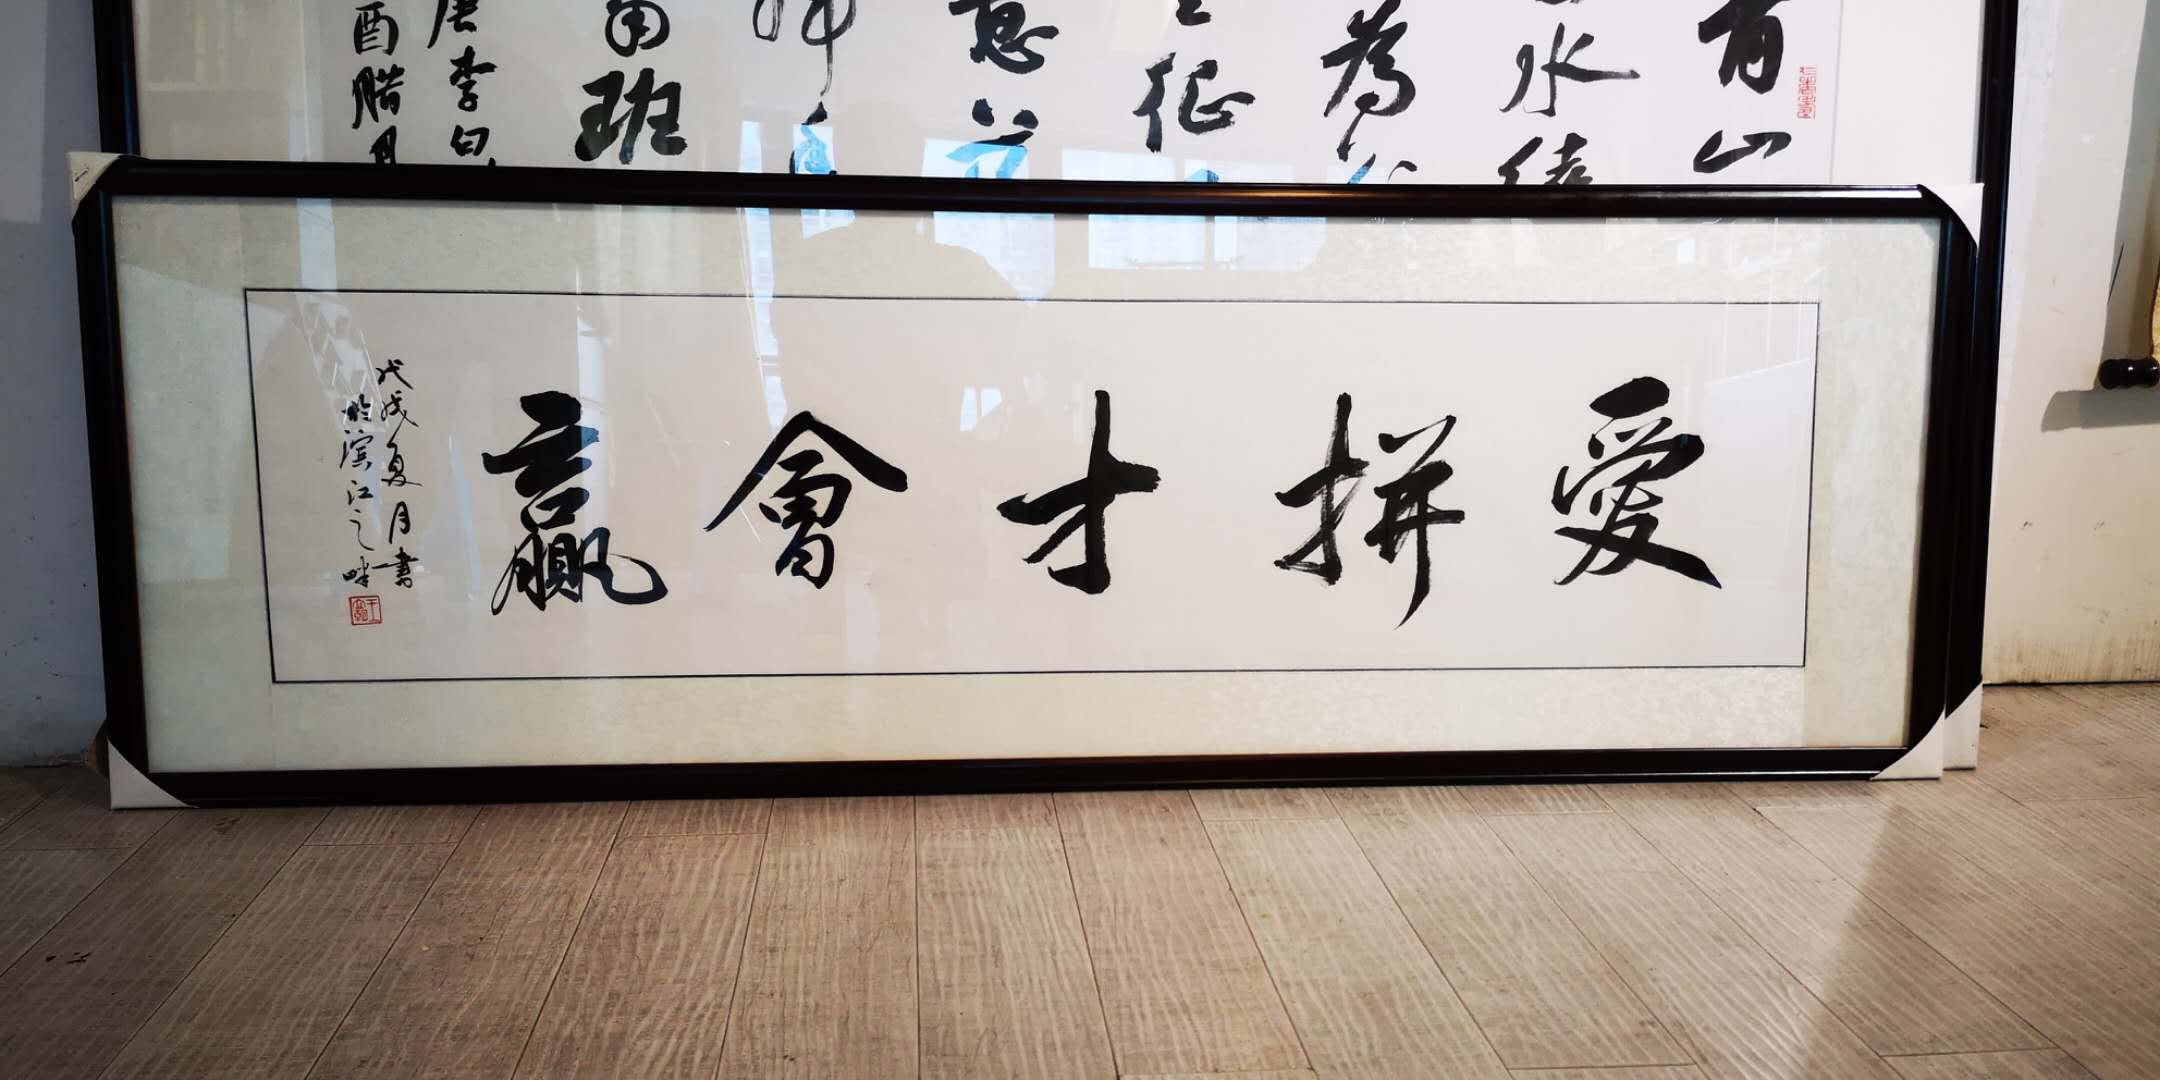 青山
水遶
為
征
意
班
唐李白
酉腊月
愛拼才會贏
戊戌夏月書
於滨江之畔